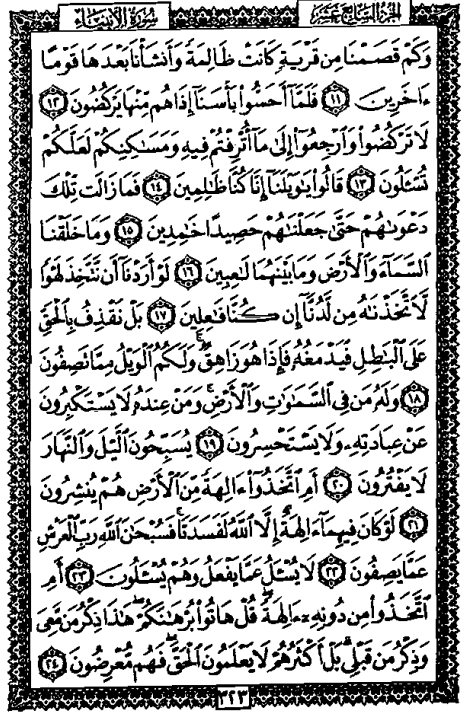 الجزء السابع عشر سورة الأنبياء
وَكَمْ قَصَمْنَا مِن قَرْيَةٍ كَانَتْ ظَالِمَةً وَأَنشَأْنَا بَعْدَهَا قَوْمًا
ءَاخَرِينَ ۝١١ فَلَمَّآ أَحَسُّوا۟ بَأْسَنَآ إِذَا هُم مِّنْهَا يَرْكُضُونَ ۝١٢
لَا تَرْكُضُوا۟ وَٱرْجِعُوٓا۟ إِلَىٰ مَآ أُتْرِفْتُمْ فِيهِ وَمَسَٰكِنِكُمْ لَعَلَّكُمْ
تُسْـَٔلُونَ ۝١٣ قَالُوا۟ يَٰوَيْلَنَآ إِنَّا كُنَّا ظَٰلِمِينَ ۝١٤ فَمَا زَالَت تِّلْكَ
دَعْوَىٰهُمْ حَتَّىٰ جَعَلْنَٰهُمْ حَصِيدًا خَٰمِدِينَ ۝١٥ وَمَا خَلَقْنَا
ٱلسَّمَآءَ وَٱلْأَرْضَ وَمَا بَيْنَهُمَا لَٰعِبِينَ ۝١٦ لَوْ أَرَدْنَآ أَن نَّتَّخِذَ لَهْوًا
لَّٱتَّخَذْنَٰهُ مِن لَّدُنَّآ إِن كُنَّا فَٰعِلِينَ ۝١٧ بَلْ نَقْذِفُ بِٱلْحَقِّ
عَلَى ٱلْبَٰطِلِ فَيَدْمَغُهُۥ فَإِذَا هُوَ زَاهِقٌ ۚ وَلَكُمُ ٱلْوَيْلُ مِمَّا تَصِفُونَ
۝١٨ وَلَهُۥ مَن فِى ٱلسَّمَٰوَٰتِ وَٱلْأَرْضِ ۚ وَمَنْ عِندَهُۥ لَا يَسْتَكْبِرُونَ
عَنْ عِبَادَتِهِۦ وَلَا يَسْتَحْسِرُونَ ۝١٩ يُسَبِّحُونَ ٱلَّيْلَ وَٱلنَّهَارَ
لَا يَفْتُرُونَ ۝٢٠ أَمِ ٱتَّخَذُوٓا۟ ءَالِهَةً مِّنَ ٱلْأَرْضِ هُمْ يُنشِرُونَ
۝٢١ لَوْ كَانَ فِيهِمَآ ءَالِهَةٌ إِلَّا ٱللَّهُ لَفَسَدَتَا ۚ فَسُبْحَٰنَ ٱللَّهِ رَبِّ ٱلْعَرْشِ
عَمَّا يَصِفُونَ ۝٢٢ لَا يُسْـَٔلُ عَمَّا يَفْعَلُ وَهُمْ يُسْـَٔلُونَ ۝٢٣ أَمِ
ٱتَّخَذُوا۟ مِن دُونِهِۦٓ ءَالِهَةً ۖ قُلْ هَاتُوا۟ بُرْهَٰنَكُمْ ۖ هَٰذَا ذِكْرُ مَن مَّعِىَ
وَذِكْرُ مَن قَبْلِى ۗ بَلْ أَكْثَرُهُمْ لَا يَعْلَمُونَ ٱلْحَقَّ ۖ فَهُم مُّعْرِضُونَ ۝٢٤
٣٢٣